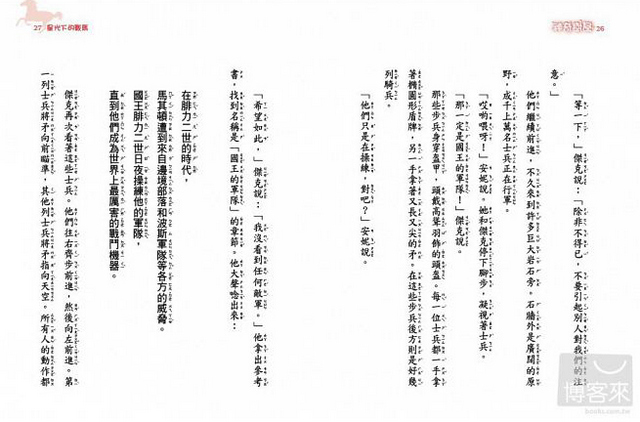 神奇樹屋 26
「等一下，」傑克說：「除非不得已，不要引起別人對我們的注
意。」
他們繼續前進，不久來到許多巨大岩石旁。石牆外是廣闊的原
野，成千上萬名士兵正在行軍。
「哎喲喂呀！」安妮說。她和傑克停下腳步，凝視著士兵。
「那一定是國王的軍隊！」傑克說。
那些步兵身穿盔甲，頭戴高聳羽飾的頭盔。每一位士兵都一手拿
著橢圓形盾牌，另一手拿著又長又尖的矛。在這些步兵後方則是好幾
列騎兵。
「他們只是在操練，對吧？」安妮說。
27 星光下的戰馬
「希望如此，」傑克說：「我沒看到任何敵軍。」他拿出參考
書，找到名稱是「國王的軍隊」的章節。他大聲唸出來：
在腓力二世的時代，
馬其頓遭到來自邊境部落和波斯軍隊等各方的威脅。
國王腓力二世日夜操練他的軍隊，
直到他們成為世界上最厲害的戰鬥機器。
傑克再次看著這些士兵。他們往右齊步前進，然後向左前進。第
一列士兵將矛向前瞄準，其他列士兵將矛指向天空。所有人的動作都
博客來
books.com.tw